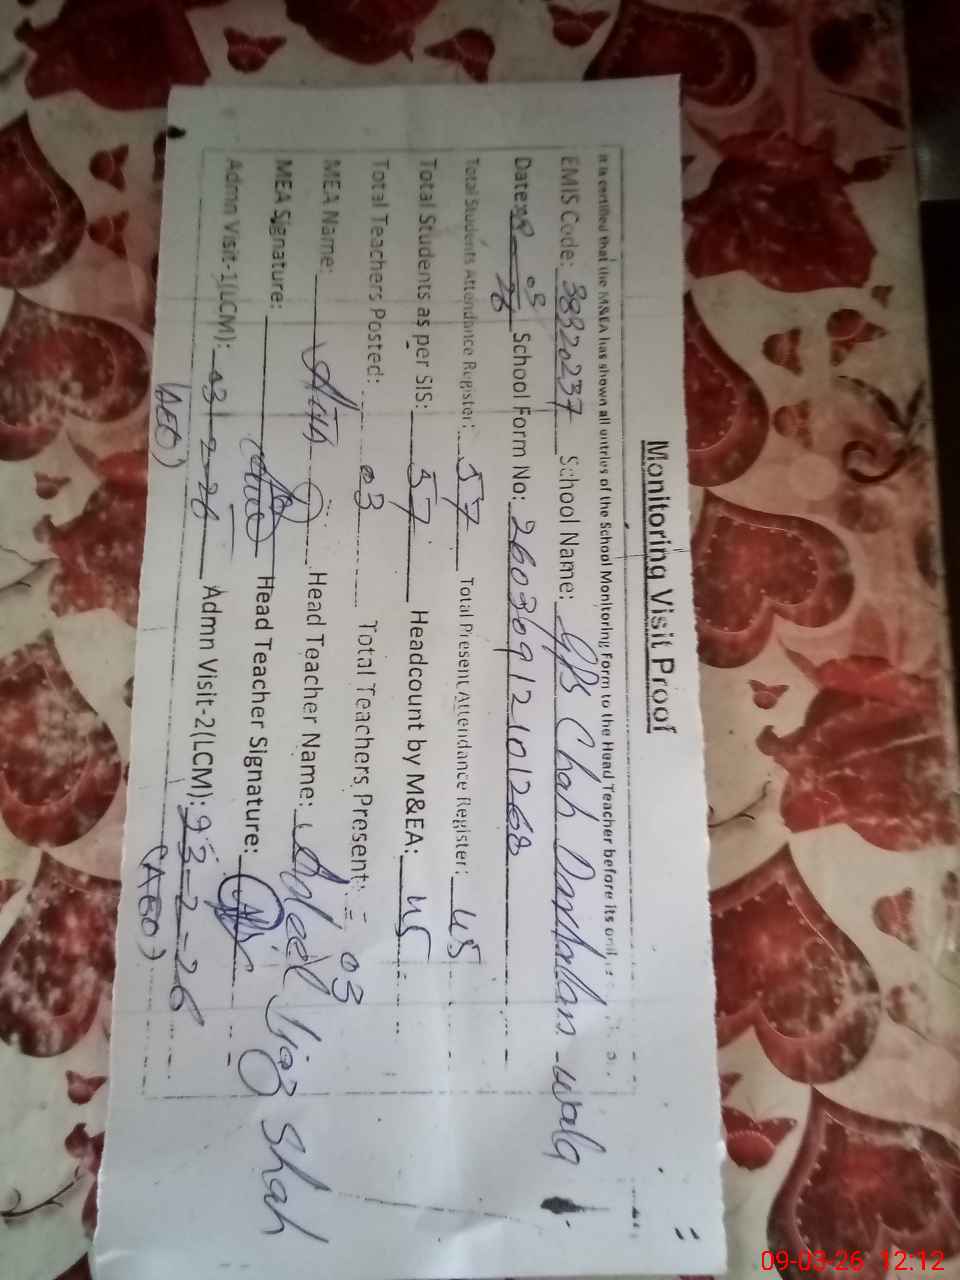 Monitoring Visit Proof
It is certified that the M&EA has shown all entries of the School Monitoring Form to the Head Teacher before its
EMIS Code: 38320237 School Name: GPS Chah Darkhan wala
Date: 09 03 26 School Form No: 26030912101268
Total Students Attendance Register: 57 Total Present Attendance Register: 45
Total Students as per SIS: 57 Headcount by M&EA: 45
Total Teachers Posted: 03 Total Teachers Present: = 03
MEA Name: Head Teacher Name: Vijaz Shah
MEA Signature: Head Teacher Signature:
Admn Visit-1(LCM): 03-2-26 Admn Visit-2(LCM): 9-3-2-26
(AEO) (AEO)
09-03-26 12:12